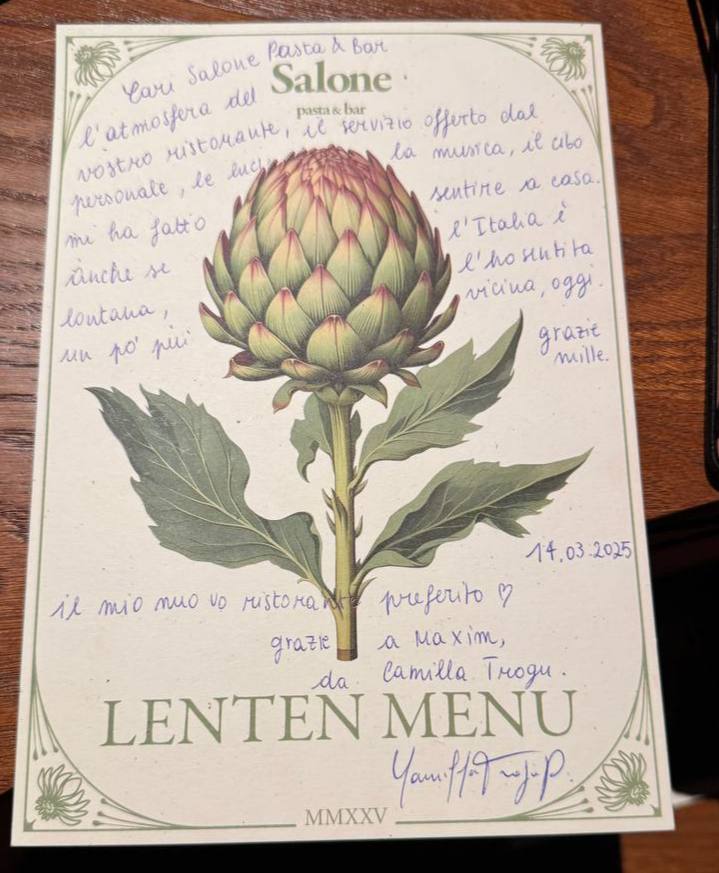 Cari Salone Pasta & Bar
Salone
pasta & bar
l'atmosfera del
vostro ristorante, il servizio offerto dal
personale, le luci, la musica, il cibo
mi ha fatto sentire a casa.
anche se l'Italia è
lontana, l'ho sentita
un po' più vicina, oggi.
grazie
mille.
14.03.2025
il mio nuovo ristorante preferito ♡
grazie a Maxim,
da Camilla Trogu.
LENTEN MENU
MMXXV